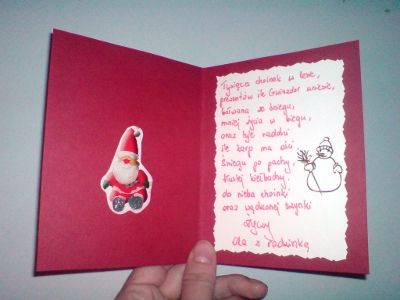 Tysięcy choinek w lesie,
prezentów ile Gwiazdor uniesie,
bałwana ze śniegu,
mniej życia w biegu,
oraz tyle radości
ile karp ma ości
śniegu po pachy,
tłustej kiełbachy
do nieba choinki
oraz wędzonej szynki
życzy
Ola z rodzinką